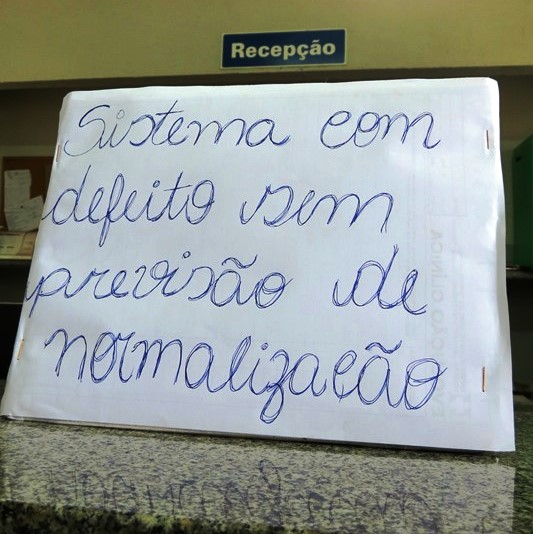 Recepção
Sistema com
defeito sem
previsão de
normalização